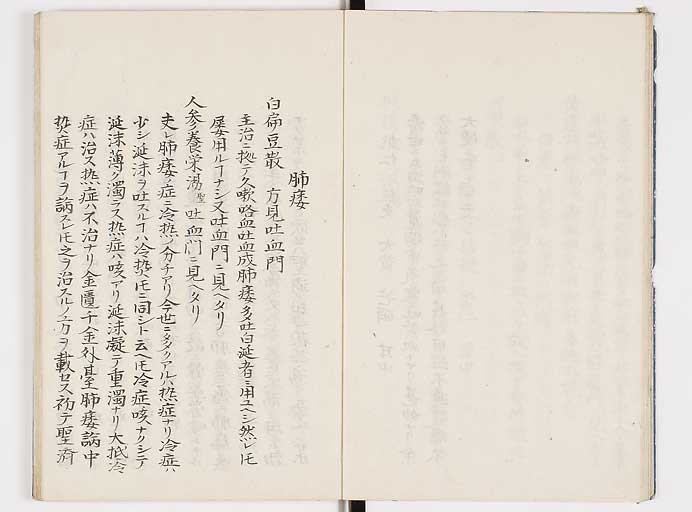 肺痿
白扁豆散 方見吐血門
主治ニ拠テ久嗽咯血吐血成肺痿多吐白涎者ニ用ユヘシ然レ𪜈
屡用ルヿナシ又吐血門ニ見ヘタリ
人参養栄湯 聖 吐血門ニ見ヘタリ
夫レ肺痿ノ症ニ冷热ノ分チアリ今世ニ多クアルハ热症ナリ冷症ハ
少シ涎沫ヲ吐スルヿハ冷热𪜈ニ同シト云ヘ𪜈冷症咳ナクシテ
涎沫薄ク濁ラス热症ハ咳アリ涎沫凝テ重濁ナリ大抵冷
症ハ治ス热症ハ不治ナリ金匱千金外臺肺痿論中
热症アルヿヲ論スレ𪜈之ヲ治スルノ方ヲ載セス初テ聖済